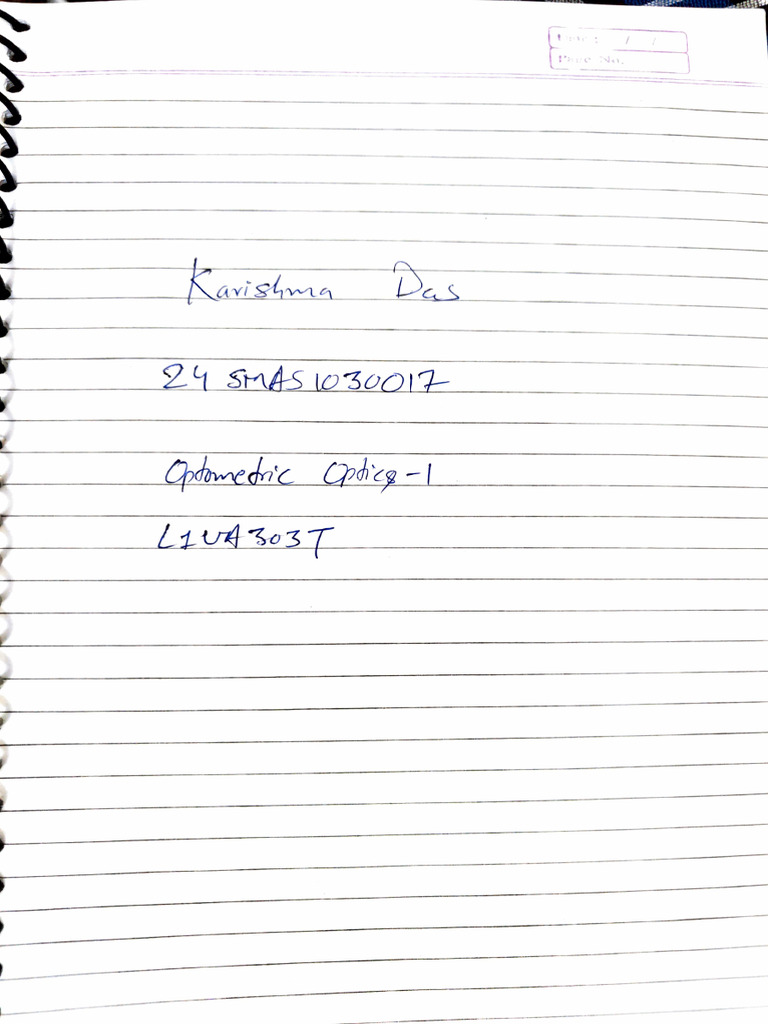 Date: / /
Page No.
Karishma Das
24 SMAS1030017
Optometric Optics-1
L1UA303T